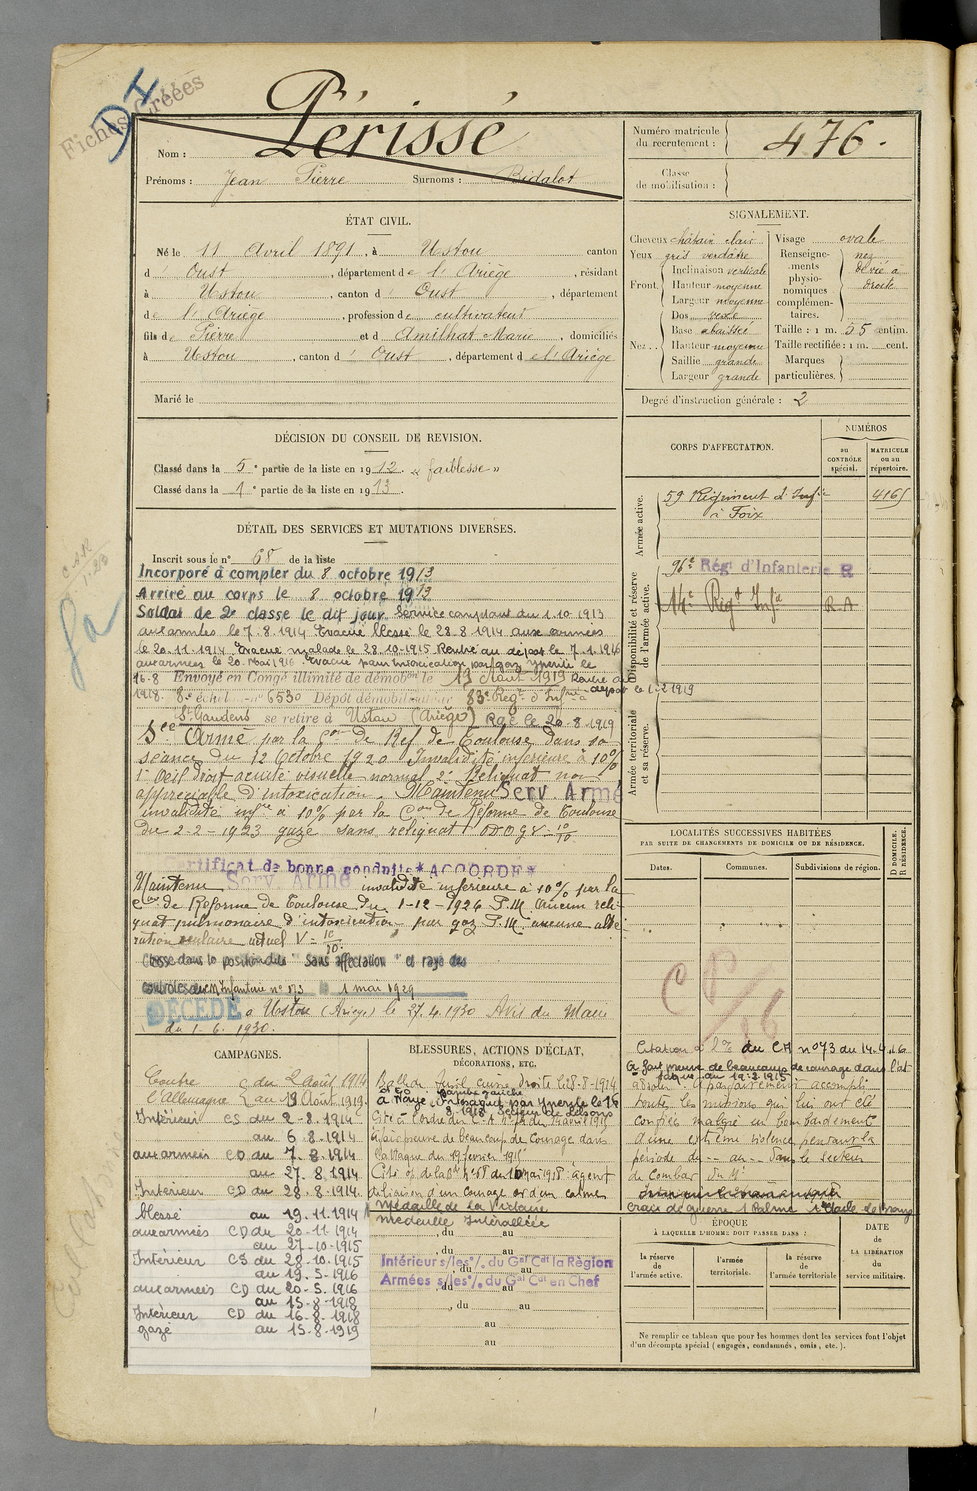 Fiches Créées
D I
Nom : Périssé
Prénoms : Jean Pierre Surnoms : Bidalot
Numéro matricule du recrutement : 476.
Classe de mobilisation :
ÉTAT CIVIL.
Né le 11 Avril 1891, à Ustou canton
d' Oust, département de l'Ariège, résidant
à Ustou, canton d' Oust, département
de l'Ariège, profession de cultivateur
fils de Pierre et d' Amilhat Marie, domiciliés
à Ustou, canton d' Oust, département de l'Ariège
Marié le
SIGNALEMENT.
Cheveux châtain clair
Yeux gris verdâtre
Front. Inclinaison verticale
Hauteur moyenne
Largeur moyenne
Nez.. Dos vexe
Base abaissée
Hauteur moyenne
Saillie grande
Largeur grande
Visage ovale
Renseignements physionomiques complémentaires. nez dévié à droite
Taille : 1 m. 55 centim.
Taille rectifiée : 1 m. cent.
Marques particulières.
Degré d'instruction générale : 2
DÉCISION DU CONSEIL DE REVISION.
Classé dans la 5e partie de la liste en 1912. « faiblesse »
Classé dans la 1e partie de la liste en 1913.
DÉTAIL DES SERVICES ET MUTATIONS DIVERSES.
Inscrit sous le n° 68 de la liste
Incorporé à compter du 8 octobre 1913
Arrivé au corps le 8 octobre 1913
Soldat de 2e classe le dit jour Service comptant du 1.10.1913
aux armées le 7.8.1914 Evacué blessé le 28.8.1914 aux armées
le 20.11.1914 Evacué malade le 28.10.1915 Rentré au dépôt le 7.1.1916
aux armées le 20 Mai 1916 Evacué pour intoxication par gaz ypérite le
16.8.1918. Envoyé en Congé illimité de démobon le 13 Août 1919 Rentré au dépôt le 1.2.1919
8e échelon n° 6530 Dépôt démobilisateur 83e Régt d'Infie à
St Gaudens se retire à Ustou (Ariège) RGé le 20.8.1919
Sce Armé par la Con de Ref de Toulouse dans sa
séance du 12 Octobre 1920 Invalidité inférieure à 10%
1° oeil droit acuité visuelle normal 2° Reliquat non
appréciable d'intoxication. Maintenu Serv. Armé
invalidité infre à 10% par la Con de Réforme de Toulouse
du 2-2-1923 gazé sans reliquat
Certificat de bonne conduite *ACCORDÉ*
Maintenu Serv. Armé invalidité inférieure à 10% par la
Con de Réforme de Toulouse du 1-12-1926 P.M. Aucun reli-
quat pulmonaire d'intoxication par gaz P.M. aucune alté
ration oculaire actuel V = 10/10.
Classé dans la position dite "Sans affectation" et rayé des
contrôles du Mr Infanterie n° 173 le 1 mai 1929
DÉCÉDÉ à Ustou (Ariège) le 27.4.1930 Avis du Maire
du 1-6.1930.
CORPS D'AFFECTATION.
NUMÉROS
au CONTRÔLE spécial.
MATRICULE ou au répertoire.
Armée active.
59 Régiment d'Infie à Foix
4165
Disponibilité et réserve de l'armée active.
96e Régt d'Infanterie R
14e Rigt Infie R.A
Armée territoriale et sa réserve.
LOCALITÉS SUCCESSIVES HABITÉES
PAR SUITE DE CHANGEMENTS DE DOMICILE OU DE RÉSIDENCE.
Dates.
Communes.
Subdivisions de région.
D DOMICILE. R RÉSIDENCE.
CP/16
CAMPAGNES.
Contre l'Allemagne
C du 2 août 1914
au 13 Août 1919.
Intérieur CS du 2-8-1914
au 6.8.1914
aux armées CD du 7.8.1914
au 27.8.1914
Intérieur CD du 28.8.1914
blessé au 19.11.1914
aux armées CD du 20-11-1914
au 27-10-1915
Intérieur CS du 28.10-1915
au 19.5-1916
aux armées CD du 20-5.1916
au 15-8-1918
Intérieur CD du 16-8-1918
gazé au 15.8-1919
BLESSURES, ACTIONS D'ÉCLAT,
DÉCORATIONS, ETC.
Balle de fusil cuisse droite le 28-8-1914
et jambe gauche
à Raye. Intoxiqué par ypérite le 16
8-1918 Secteur de
Cité à l'ordre du C.A. n° 73 du 14 avril 1915
A fait preuve de beaucoup de courage dans
l'attaque du 19 février 1915
Cité O. de la Bde n° 58 du 10 mai 1918 "agent
de liaison d'un courage et d'un calme
Médaille de la Victoire
Médaille Interalliée
Intérieur s/les °/. du Gal Cdt la Région
Armées s/les °/. du Gal Cdt en Chef
, du au
Citation à l'O. du CA n° 73 du 14.4.
A fait preuve de beaucoup de courage dans l'at
taque du 19-2-1915
absolu. A parfaitement accompli
toutes les missions qui lui ont été
confiées malgré un bombardement
d'une extrême violence pendant la
période du -- au -- dans le secteur
de Combat du Mt
Croix de guerre 1 Palme 1 étoile de bronze
ÉPOQUE
À LAQUELLE L'HOMME DOIT PASSER DANS :
la réserve de l'armée active.
l'armée territoriale.
la réserve de l'armée territoriale
DATE de LA LIBÉRATION du service militaire.
Ne remplir ce tableau que pour les hommes dont les services font l'objet
d'un décompte spécial (engagés, condamnés, omis, etc.).